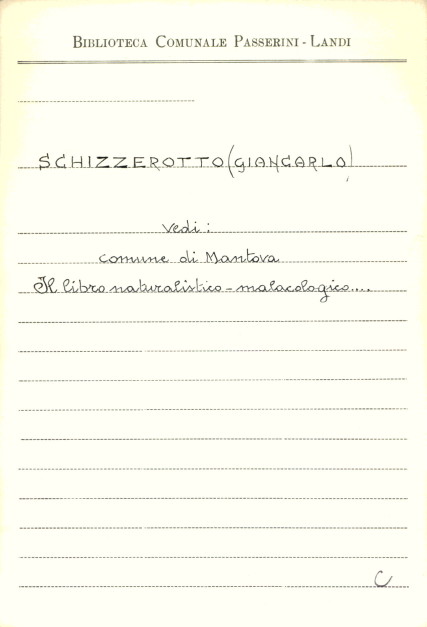 BIBLIOTECA COMUNALE PASSERINI - LANDI
SCHIZZEROTTO (GIANCARLO)
vedi:
comune di Mantova
Il libro naturalistico - malacologico....
C